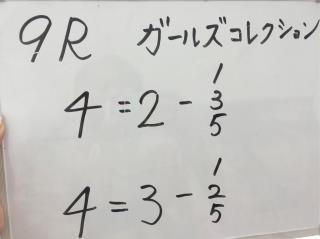 9R ガールズコレクション
1
4=2-3
5
1
4=3-2
5